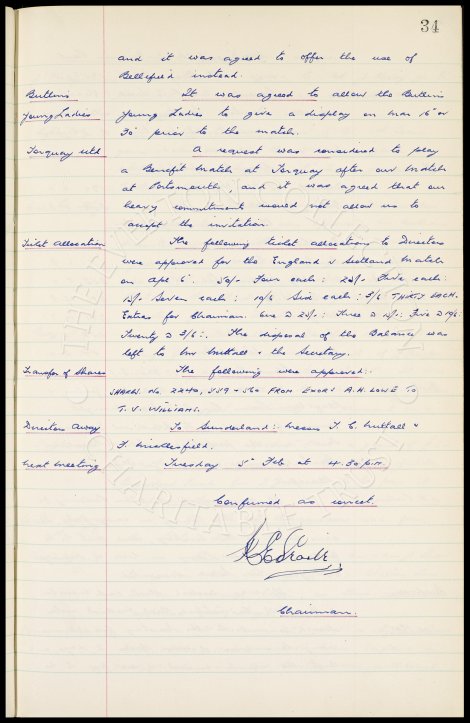 34
and it was agreed to offer the use of
Bellefield instead.
Butlins It was agreed to allow the Butlins
Young Ladies Young Ladies to give a display on Mar 16 or
30 prior to the match.
Torquay Utd A request was considered to play
a Benefit match at Torquay after our match
at Portsmouth, and it was agreed that our
heavy commitments would not allow us to
accept the invitation.
Ticket Allocation The following ticket allocations to Directors
were approved for the England v Scotland match
on Apl 6. 50/- Four each: 25/- Five each:
15/- Seven each: 10/6 Six each: 3/6 THIRTY EACH.
Extras for Chairman. One @ 25/-: Three @ 15/-: Five @ 10/6:
Twenty @ 3/6:. The disposal of the Balance was
left to Mr Nuttall & the Secretary.
Transfer of Shares The following were approved:
SHARES. No. 2240, 559 + 560 FROM EXORS A.H. LOWE TO
T. V. WILLIAMS.
Directors Away To Sunderland: Messrs T. C. Nuttall &
F. Micklesfield.
Next Meeting Tuesday 5 Feb. at 4.30 p.m.
Confirmed as correct.
Chairman.
THE EVERTON COLLECTION
CHARITABLE TRUST